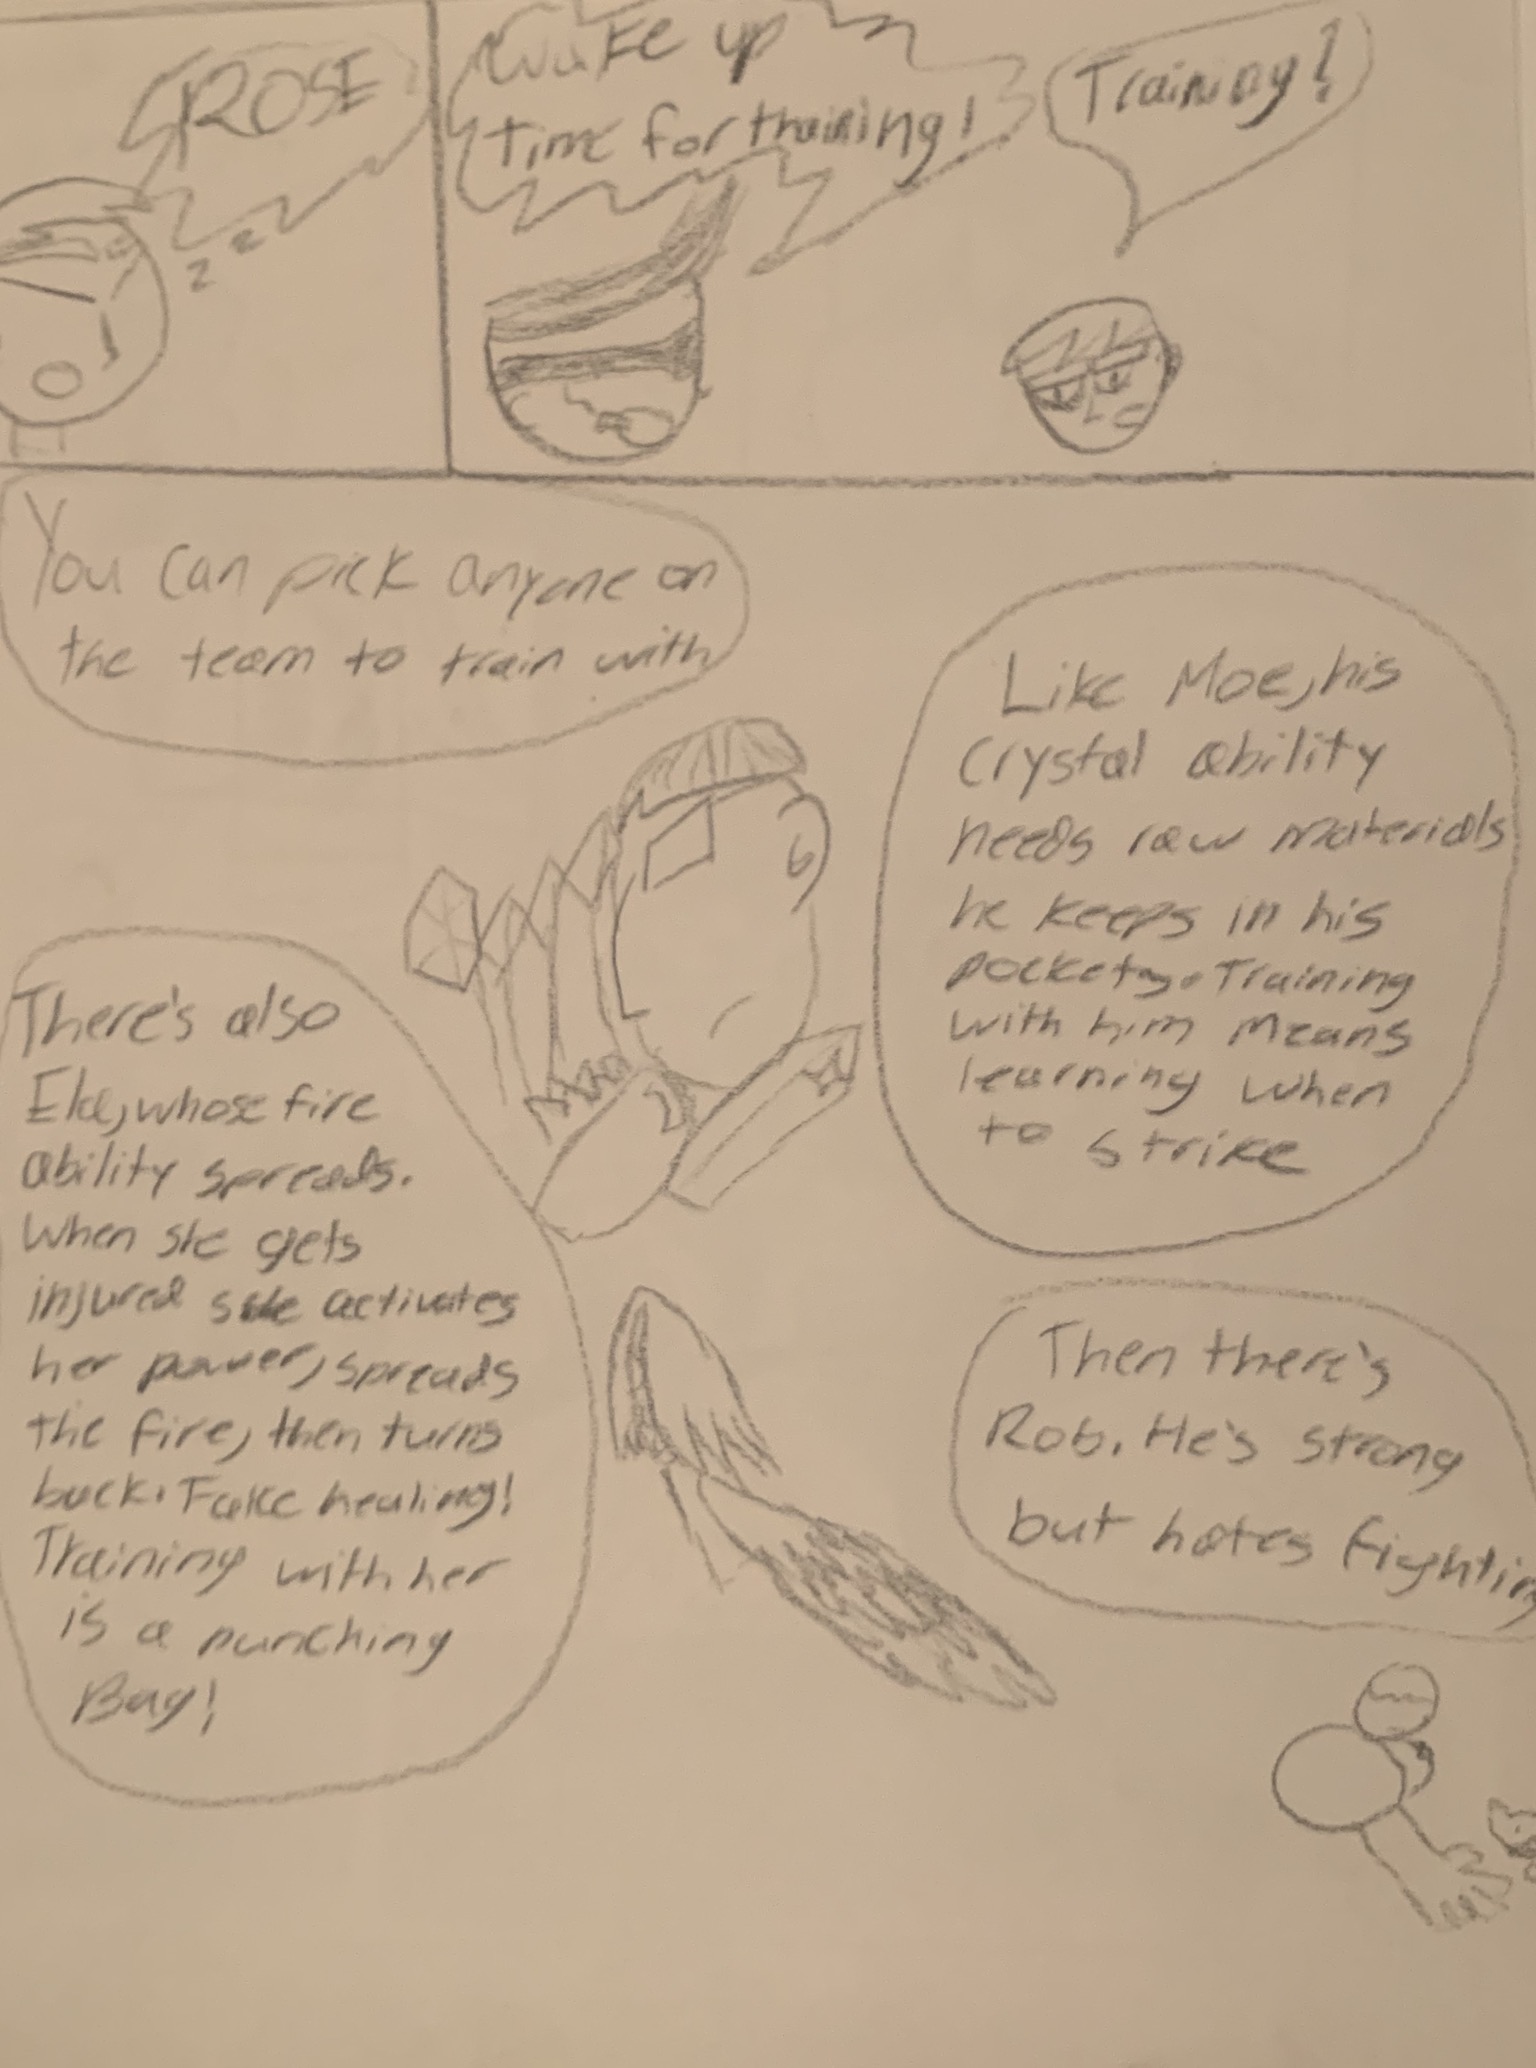 ROSE
z z
Wake up
time for training!
Training?
You can pick anyone on
the team to train with
Like Moe, his
Crystal ability
needs raw materials
he keeps in his
pockets. Training
with him means
learning when
to strike
There's also
Ela, whose fire
ability spreads.
When she gets
injured she activates
her power, spreads
the fire, then turns
back. Fake healing!
Training with her
is a punching
Bag!
Then there's
Rob. He's strong
but hates fighting